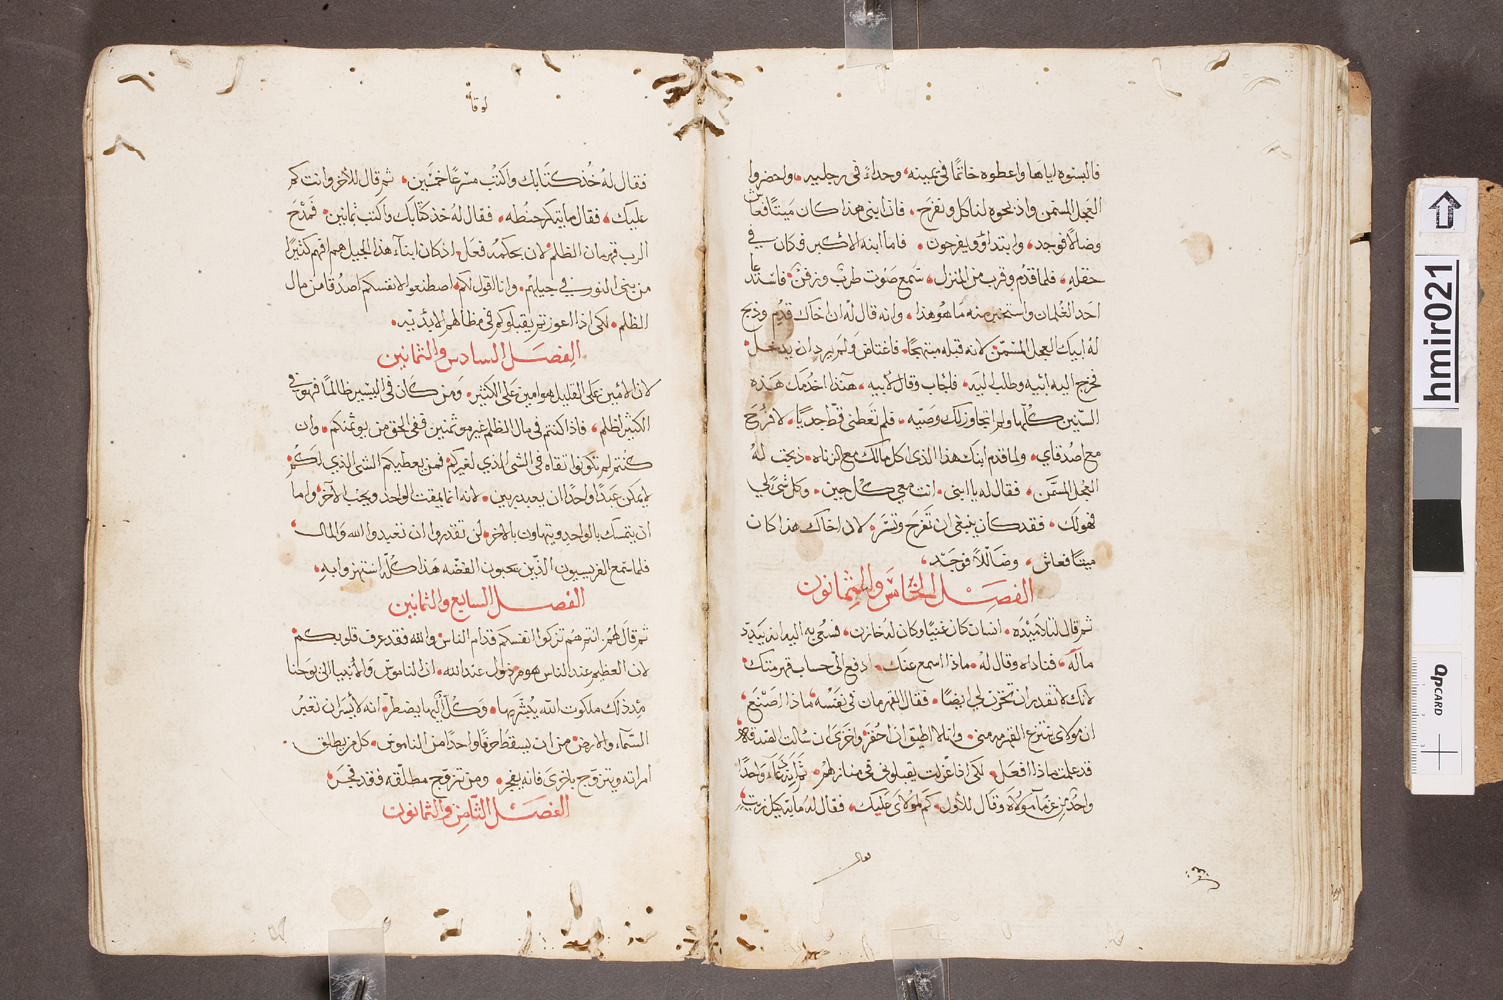 فالبسوه اياها واعطوه خاتمًا في يمينه، وحداء في رجليه، واحضروا
العجل المسمن واذبحوه لناكل ونفرح، فان ابني هذا كان ميتًا فعاش
وضالًا فوجد، وابتداؤو يفرحون، فاما ابنه الاكبر فكان في
حقله، فلما قدم وقرب من المنزل، سمع صوت طرب ورفن، فاستدعا
احد الغلمان واستخبر منه ما هو هذا، وانه قال له ان اخاك قدم وذبح
له ابيك العجل المسمن، لانه قبله مبتهجًا، فاغتاض ولم يرد ان يدخل
فخرج اليه ابيه وطلب اليه، فاجاب وقال لابيه، هنذا اخدمك هذه
السنين كلها ولم اتجاوز لك وصيه، فلم تعطني قط جديًا، لافرح
مع اصدقاي، ولما قدم ابنك هذا الذي اكل مالك مع الزناه، ذبحت له
العجل المسمن، فقال له يا ابني، انت معي كل حين، وكل شي لي
فهو لك، فقد كان ينبغي ان تفرح وتسر، لان اخاك هذا كان
ميتًا فعاش، وضالًا فوجد،
الفصل الخامس والثمانون
ثم قال لتلاميذه، انسان كان غنيًا وكان له خازن، فسعي به اليه انه يبدد
ماله، فناداه وقال له، ماذا اسمع عنك، ادفع الي حساب قهرمتك
لانك لا تقدر ان تخزن لي ايضًا، فقال القهرمان في نفسه ماذا اصنع،
ان مولاي ينتزع القهرمه مني، وانا لا اطيق ان احفر، واخزي ان سالت الصدقه
قد علمت ماذا افعل، لكي اذا عزلت يقبلوني في منازلهم، ثم انه دعاء واحدًا
واحدًا من غرمآ مولاه وقال للاول، كم لمولاي عليك، فقال له مايه كيل زيت،
فقال
لوقا
فقال له خذ كتابك واكتب مسرعًا خمسين، ثم قال للاخر وانت كم
عليك، فقال مايه كر حنطه، فقال له خذ كتابك واكتب ثمانين، فمدح
الرب قهرمان الظلم، لان بحكمه فعل، اذ كان ابنآء هذا الجيل هم افهم كثيرًا
من بني النور في جيلهم، وانا اقول لكم، اصطنعوا لانفسكم اصدقا من مال
الظلم، لكي اذا اعوزتم يقبلوكم في مظالهم الابديه،
الفصل السادس والثمانين
لان الامين علي القليل هو امين علي الكثير، ومن كان في اليسير ظالمًا فهو في
الكثير اظلم، فاذا كنتم في مال الظلم غير موتمنين ففي الحق من يوتمنكم، وان
كنتم لم تكونوا ثقاه في الشي الذي لغيركم، فمن يعطيكم الشي الذي لكم،
لا يمكن عبدًا واحدًا ان يعبد ربين، لانه انما يمقت الواحد ويحب الآخر، واما
ان يتمسك بالواحد ويتهاون بالاخر، لن تقدروا ان تعبدوا الله والمال،
فلما سمع الفريسيون الذين يحبون الفضه هذا كله استهزوا به،
الفصل السابع والثمانين
ثم قال لهم، انتم هم تزكوا انفسكم قدام الناس، والله فقد عرف قلوبكم،
لان العظيم عند الناس هو مرذول عند الله، ان الناموس والانبيا الي يوحنا
منذ ذلك ملكوت الله يبشر بها، وكلًا اليها يضطر، انه لايسر ان تغبر
السمآء والارض، من ان يسقط حرفًا واحدًا من الناموس، كل من يطلق
امراته ويتزوج باخري فانه يفجر، ومن تزوج مطلقه فقد فجر،
الفصل الثامن والثمانون
hmir021
QPCARD